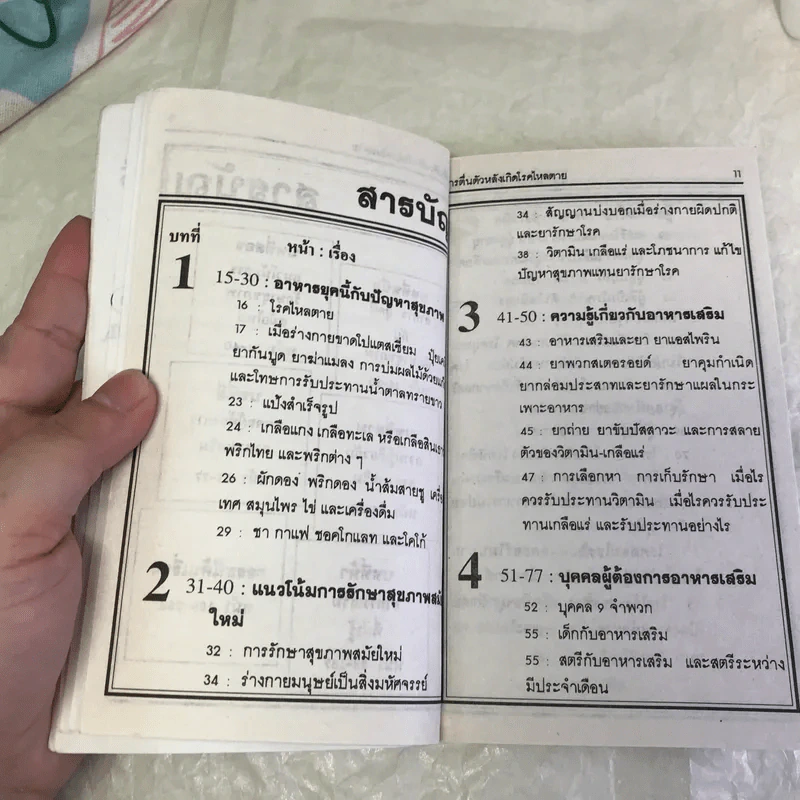 สารบัญ
บทที่
หน้า : เรื่อง
1
15-30 : อาหารยุคนี้กับปัญหาสุขภาพ
16 : โรคไหลตาย
17 : เมื่อร่างกายขาดโปแตสเซี่ยม
ยากันบูด ยาฆ่าแมลง การบ่มผลไม้ด้วย
และโทษการรับประทานน้ำตาลทรายขาว
23 : แป้งสำเร็จรูป
24 : เกลือแกง เกลือทะเล หรือเกลือสินเธาว์
พริกไทย และพริกต่าง ๆ
26 : ผักดอง พริกดอง น้ำส้มสายชู
เทศ สมุนไพร ไข่ และเครื่องดื่ม
29 : ชา กาแฟ ชอคโกแลท และโคโก้
2
31-40 : แนวโน้มการรักษาสุขภาพสมัย
ใหม่
32 : การรักษาสุขภาพสมัยใหม่
34 : ร่างกายมนุษย์เป็นสิ่งมหัศจรรย์
การตื่นตัวหลังเกิดโรคไหลตาย 11
34 : สัญญานบ่งบอกเมื่อร่างกายผิดปกติ
และยารักษาโรค
38 : วิตามิน เกลือแร่ และโภชนาการ แก้ไข
ปัญหาสุขภาพแทนยารักษาโรค
3
41-50 : ความรู้เกี่ยวกับอาหารเสริม
43 : อาหารเสริมและยา ยาแอสไพริน
44 : ยาพวกสเตอรอยด์ ยาคุมกำเนิด
ยากล่อมประสาทและยารักษาแผลในกระ
เพาะอาหาร
45 : ยาถ่าย ยาขับปัสสาวะ และการสลาย
ตัวของวิตามิน-เกลือแร่
47 : การเลือกหา การเก็บรักษา เมื่อไร
ควรรับประทานวิตามิน เมื่อไรควรรับประ
ทานเกลือแร่ และรับประทานอย่างไร
4
51-77 : บุคคลผู้ต้องการอาหารเสริม
52 : บุคคล 9 จำพวก
55 : เด็กกับอาหารเสริม
55 : สตรีกับอาหารเสริม และสตรีระหว่าง
มีประจำเดือน